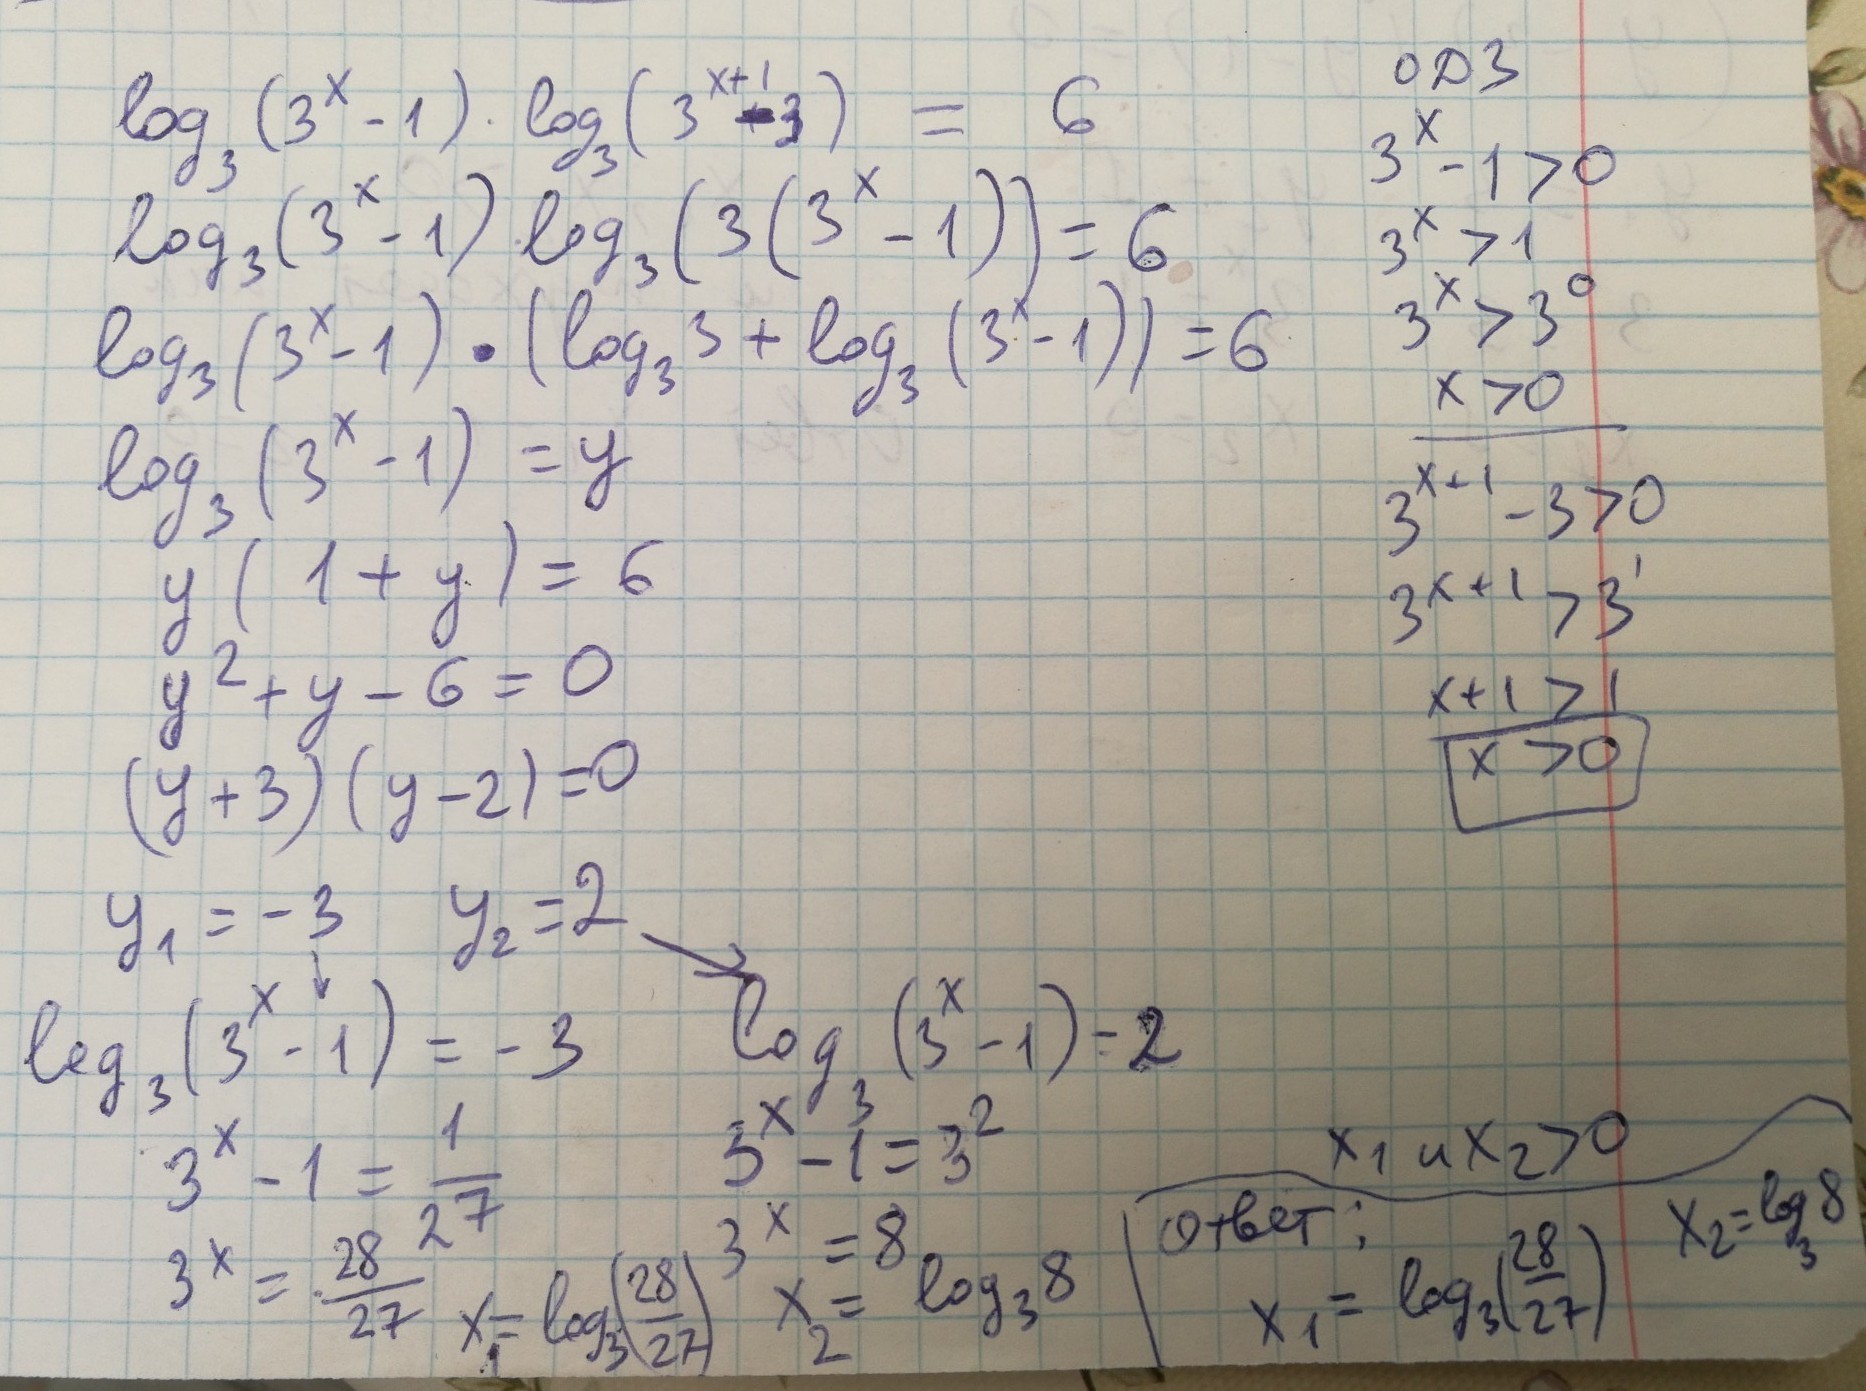 log₃(3ˣ - 1) · log₃(3ˣ⁺¹ - 3) = 6
log₃(3ˣ - 1) · log₃(3(3ˣ - 1)) = 6
log₃(3ˣ - 1) · (log₃3 + log₃(3ˣ - 1)) = 6
log₃(3ˣ - 1) = y
y(1 + y) = 6
y² + y - 6 = 0
(y + 3)(y - 2) = 0
y₁ = -3 y₂ = 2
↓ ↘
log₃(3ˣ - 1) = -3
3ˣ - 1 = 1/27
3ˣ = 28/27
x₁ = log₃(28/27)
log₃(3ˣ - 1) = 2
3ˣ - 1 = 3²
3ˣ = 8
x₂ = log₃8
ОДЗ
3ˣ - 1 > 0
3ˣ > 1
3ˣ > 3⁰
x > 0
3ˣ⁺¹ - 3 > 0
3ˣ⁺¹ > 3¹
x + 1 > 1
x > 0
x₁ и x₂ > 0
Ответ:
x₁ = log₃(28/27)
x₂ = log₃8